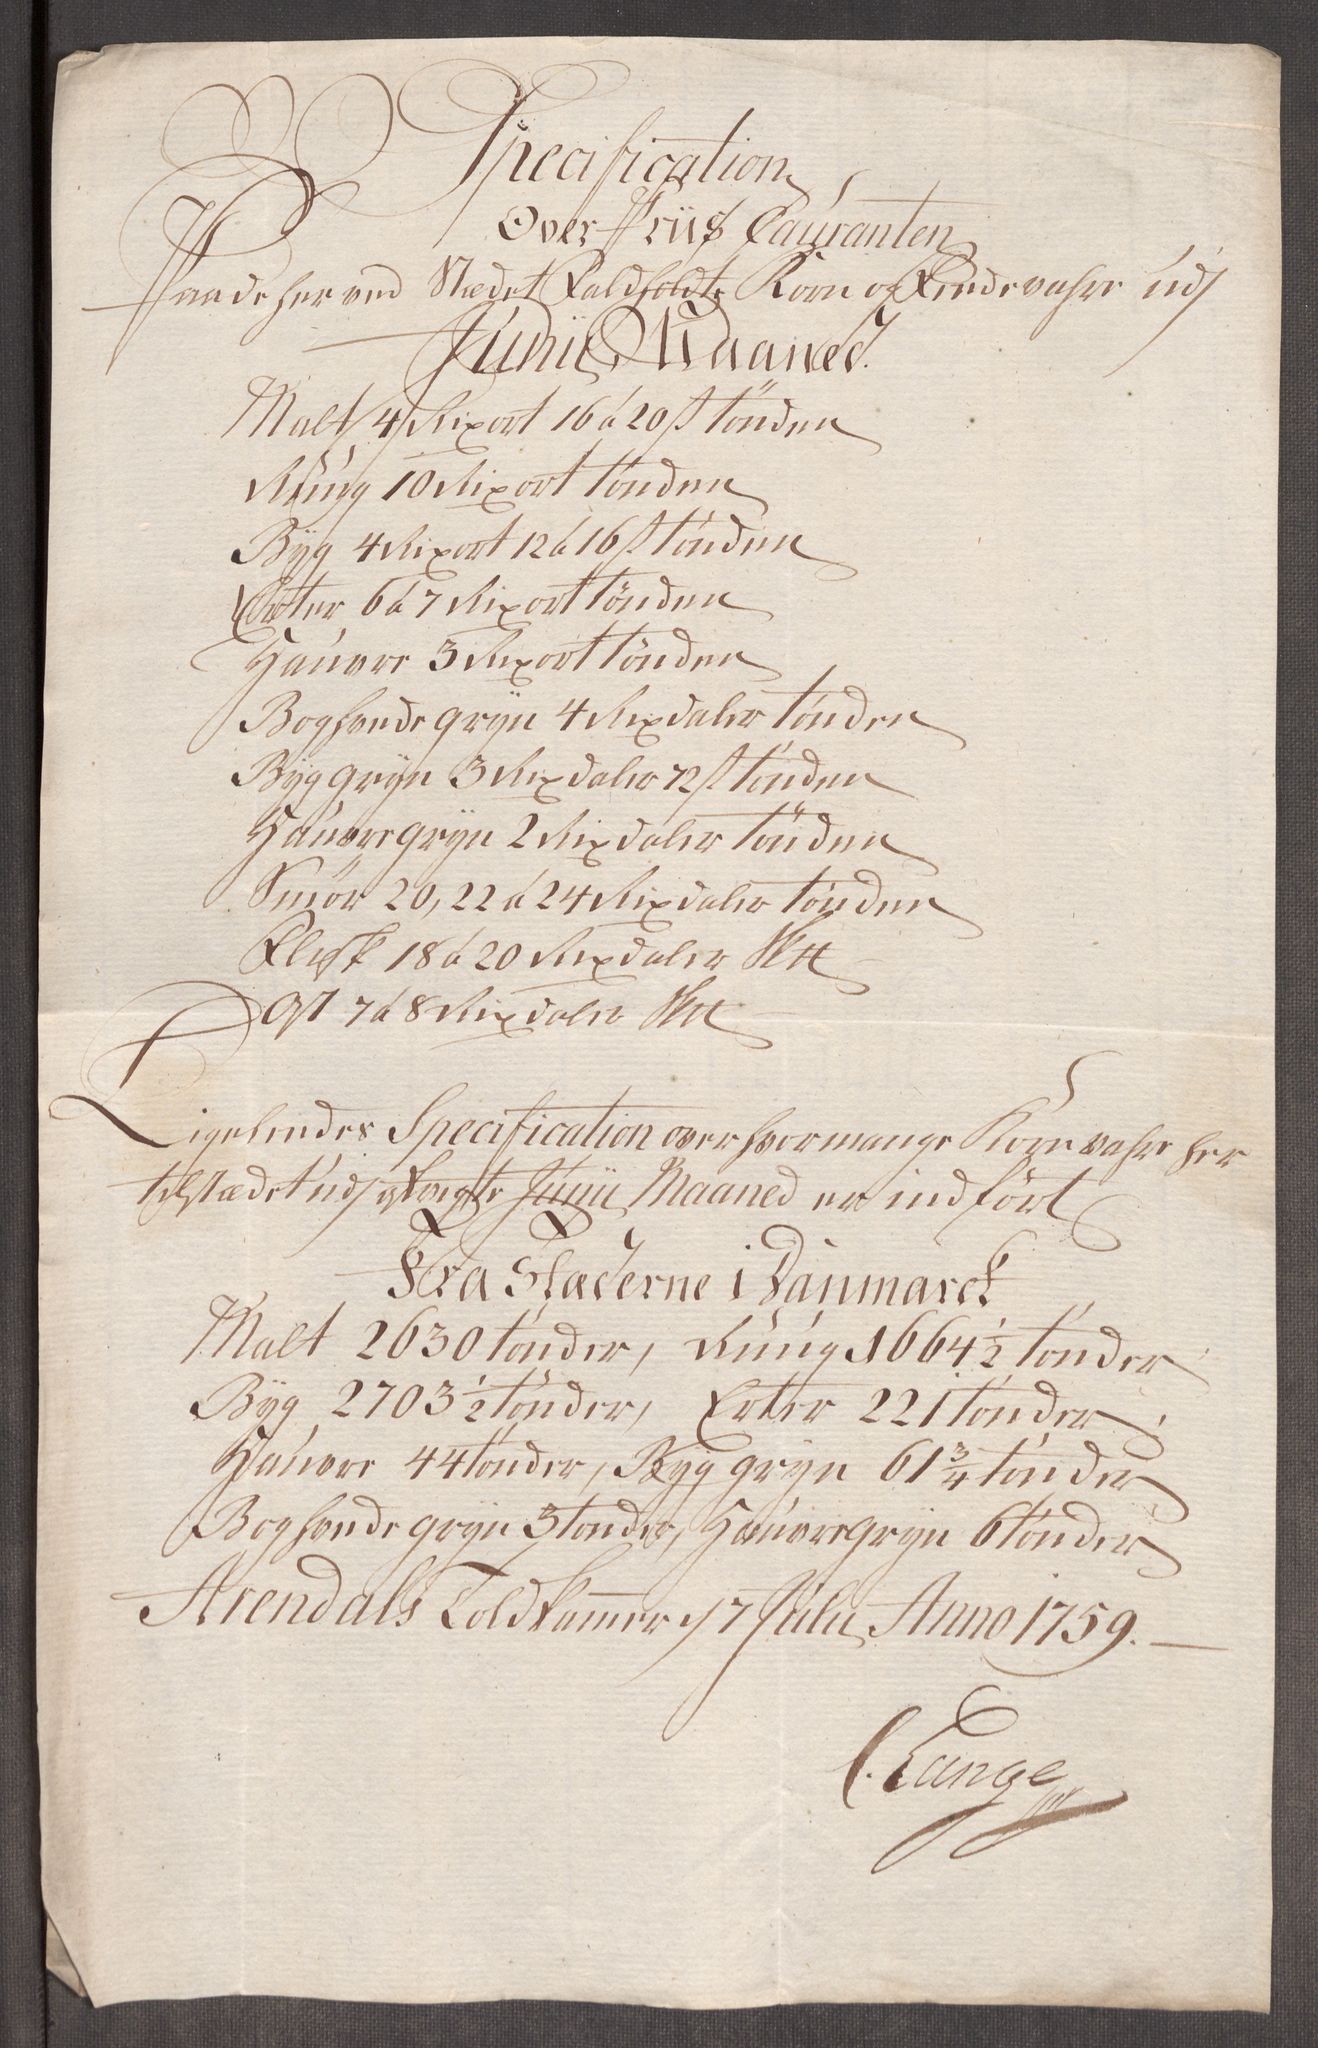 Specification
Over Priis Couranten
Paa de her ved Stædet Faldholdte Korn og Fedevahre udj
Junii Maaned.
Malt 4 Rixort 16 á 20 s tönden
Rúúg 10 Rixort tönden
Byg 4 Rixort 12 á 16 s tönden
Erter 6 á 7 Rixort tönden
Haúvre 3 Rixort tönden
Boghvede gryn 4 Rixdaler tönden
Byg gryn 3 Rixdaler 72 s tönden
Haúvre gryn 2 Rixdaler tönden
Smör 20, 22 á 24 Rixdaler tönden
Flesk 18 á 20 Rixdaler
Ost 7 á 8 Rixdaler
Ligeleedes Specification over hvormange Korn vahre her
til stædet udj Junii Maaned er indfört
Fra Stæderne i Danmarck
Malt 2630 tönder, Rúúg 1664 1/2 tönder
Byg 2703 1/2 tönder, Erter 221 tönder
Haúvre 44 tönder, Byg gryn 61 3/4 tönder
Boghvede gryn 3 tönder, Haúvre gryn 6 tönder
Arendals Toldkammer 7 Julii Anno 1759.
C. Lange